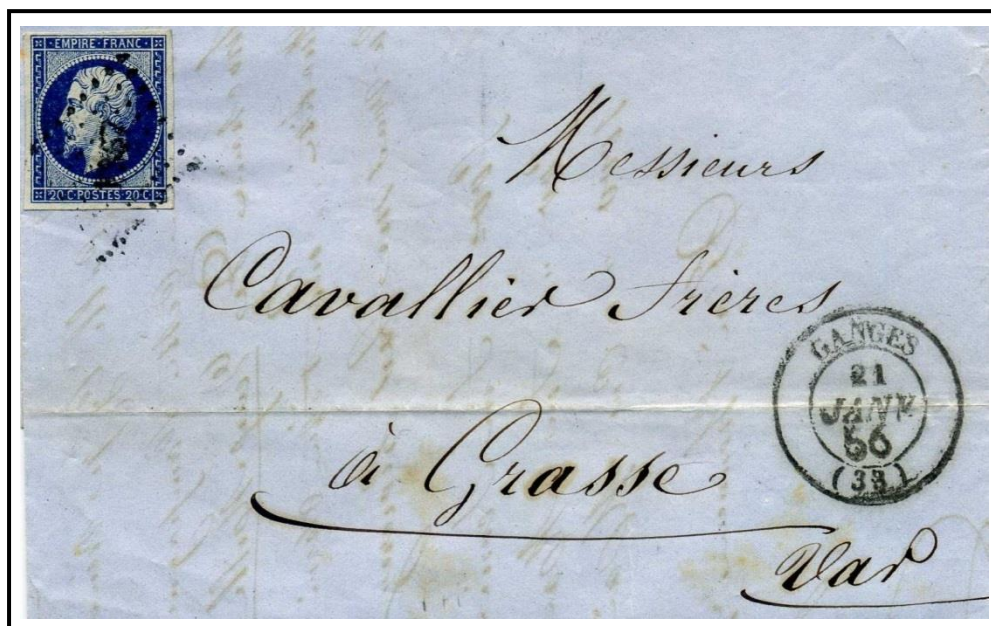 EMPIRE · FRANC ·
20 C · POSTES · 20 C
Messieurs
Cavallier frères
GANGES
21
JANV
56
(33)
à Grasse
Var